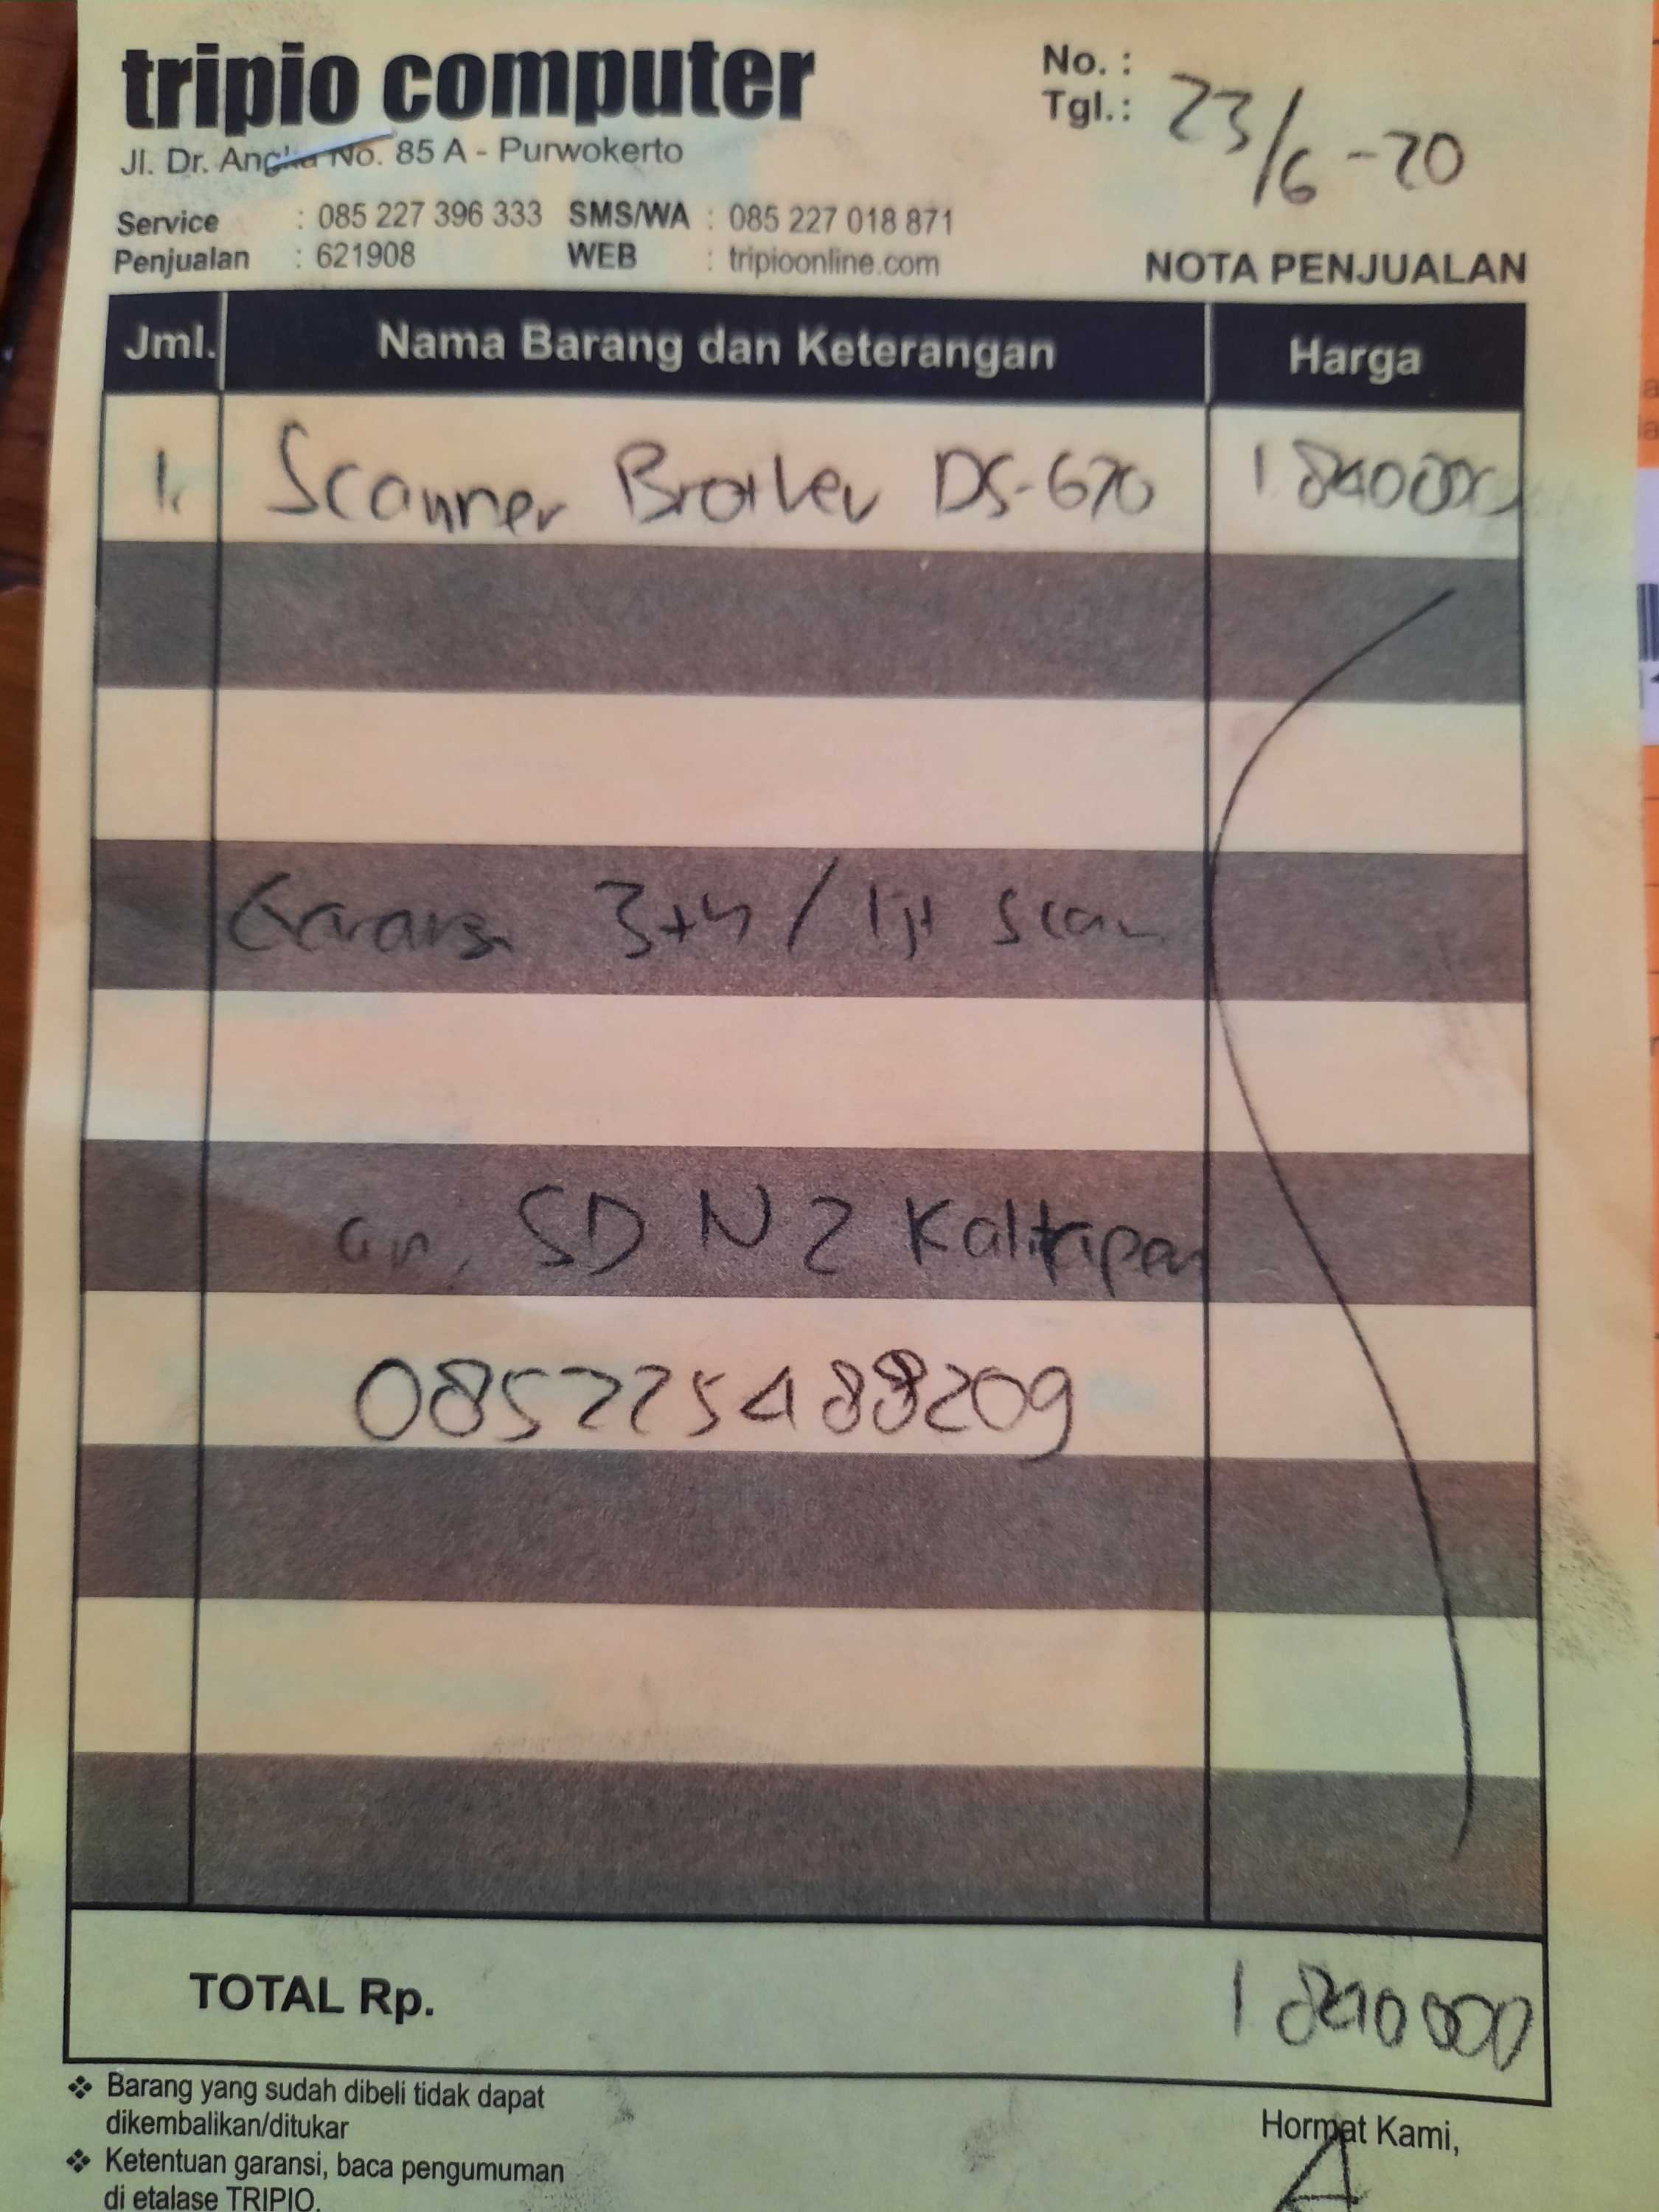 tripio computer
Jl. Dr. Angka No. 85 A - Purwokerto
Service : 085 227 396 333 SMS/WA : 085 227 018 871
Penjualan : 621908 WEB : tripioonline.com
No. :
Tgl.: 23/6-20
NOTA PENJUALAN
Jml. Nama Barang dan Keterangan Harga
1. Scanner Brother DS-620 1840000
Garansi 3th / 1jt scan
an, SD N 2 Kalitapen
085225488209
TOTAL Rp. 1840000
❖ Barang yang sudah dibeli tidak dapat
dikembalikan/ditukar
❖ Ketentuan garansi, baca pengumuman
di etalase TRIPIO.
Hormat Kami,